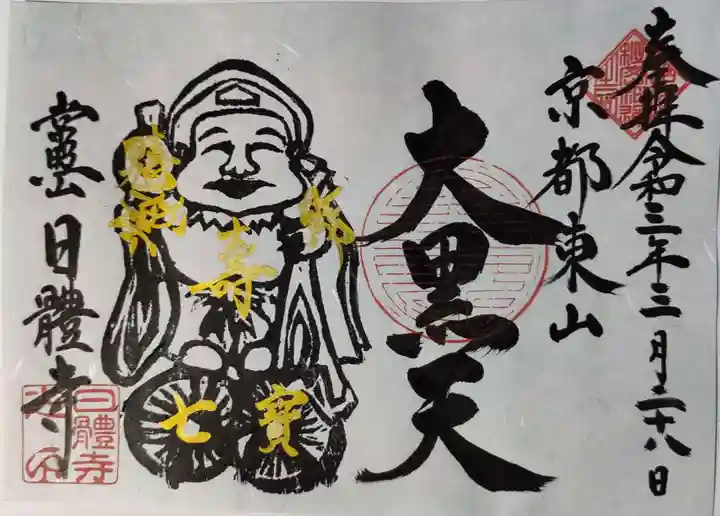 奉拝 令和三年三月二十八日
京都東山
大黒天
壽
七寶
日體寺
日體寺